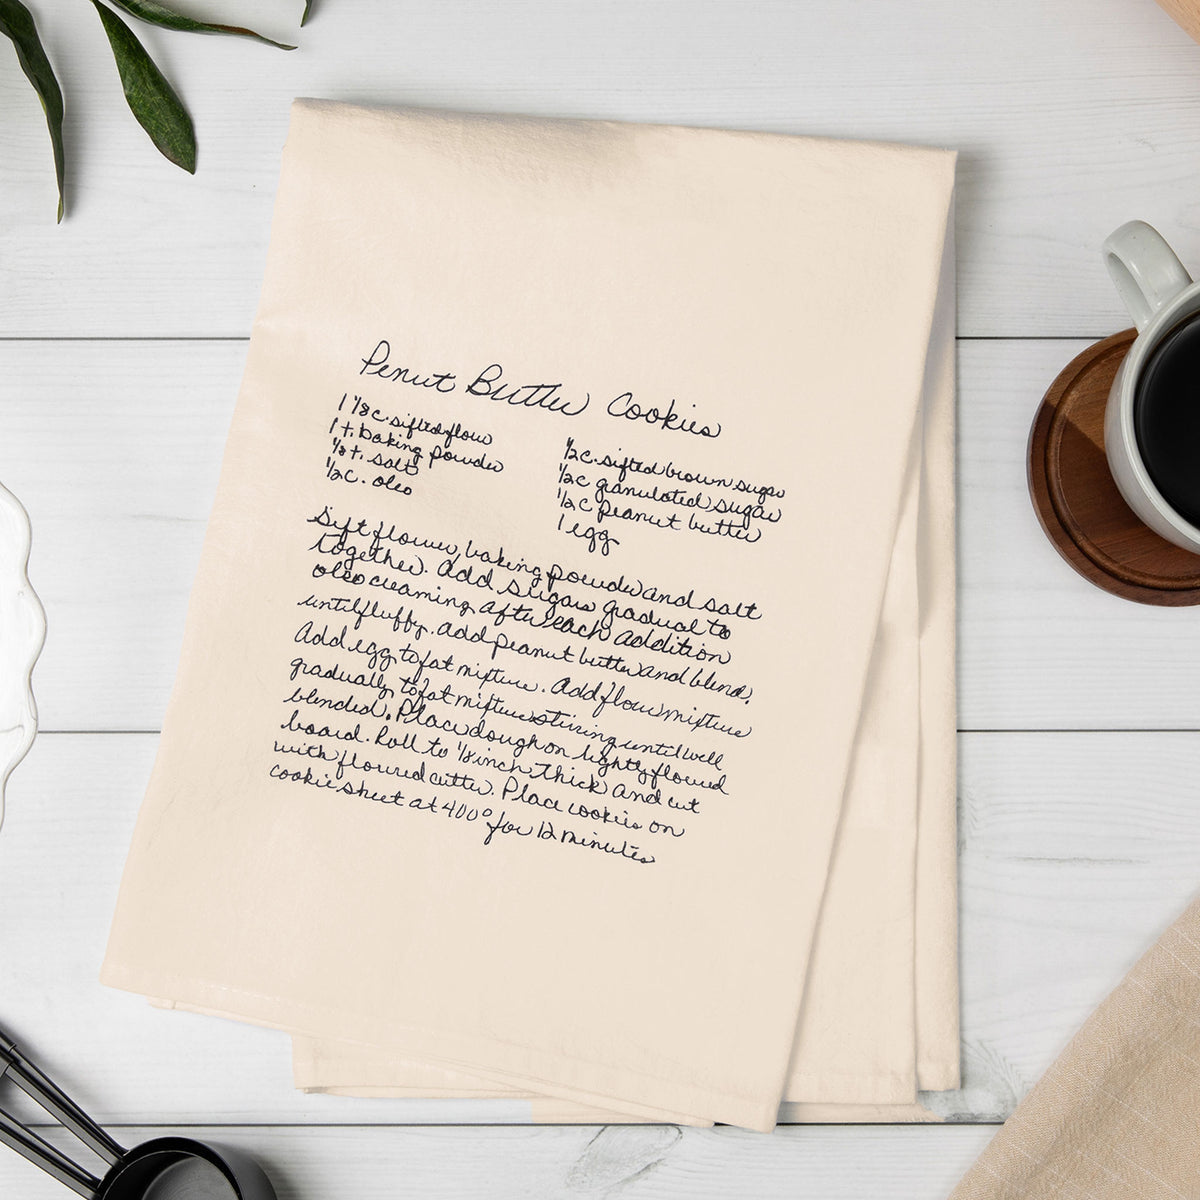 Penut Butter Cookies
1 1/8 c. sifted flour
1 t. baking powder
1/8 t. salt
1/2 c. oleo
1/2 c. sifted brown sugar
1/2 c granulated sugar
1/2 c peanut butter
1 egg
Sift flower, baking powder and salt
together. Add sugars gradual to
oleo creaming after each addition
until fluffy. add peanut butter and blend.
Add egg to fat mixture. Add flour mixture
gradually to fat mixture stiring until well
blended. Place dough on lightly floured
board. Roll to 1/8 inch thick and cut
with floured cutter. Place cookies on
cookie sheet at 400° for 12 minutes